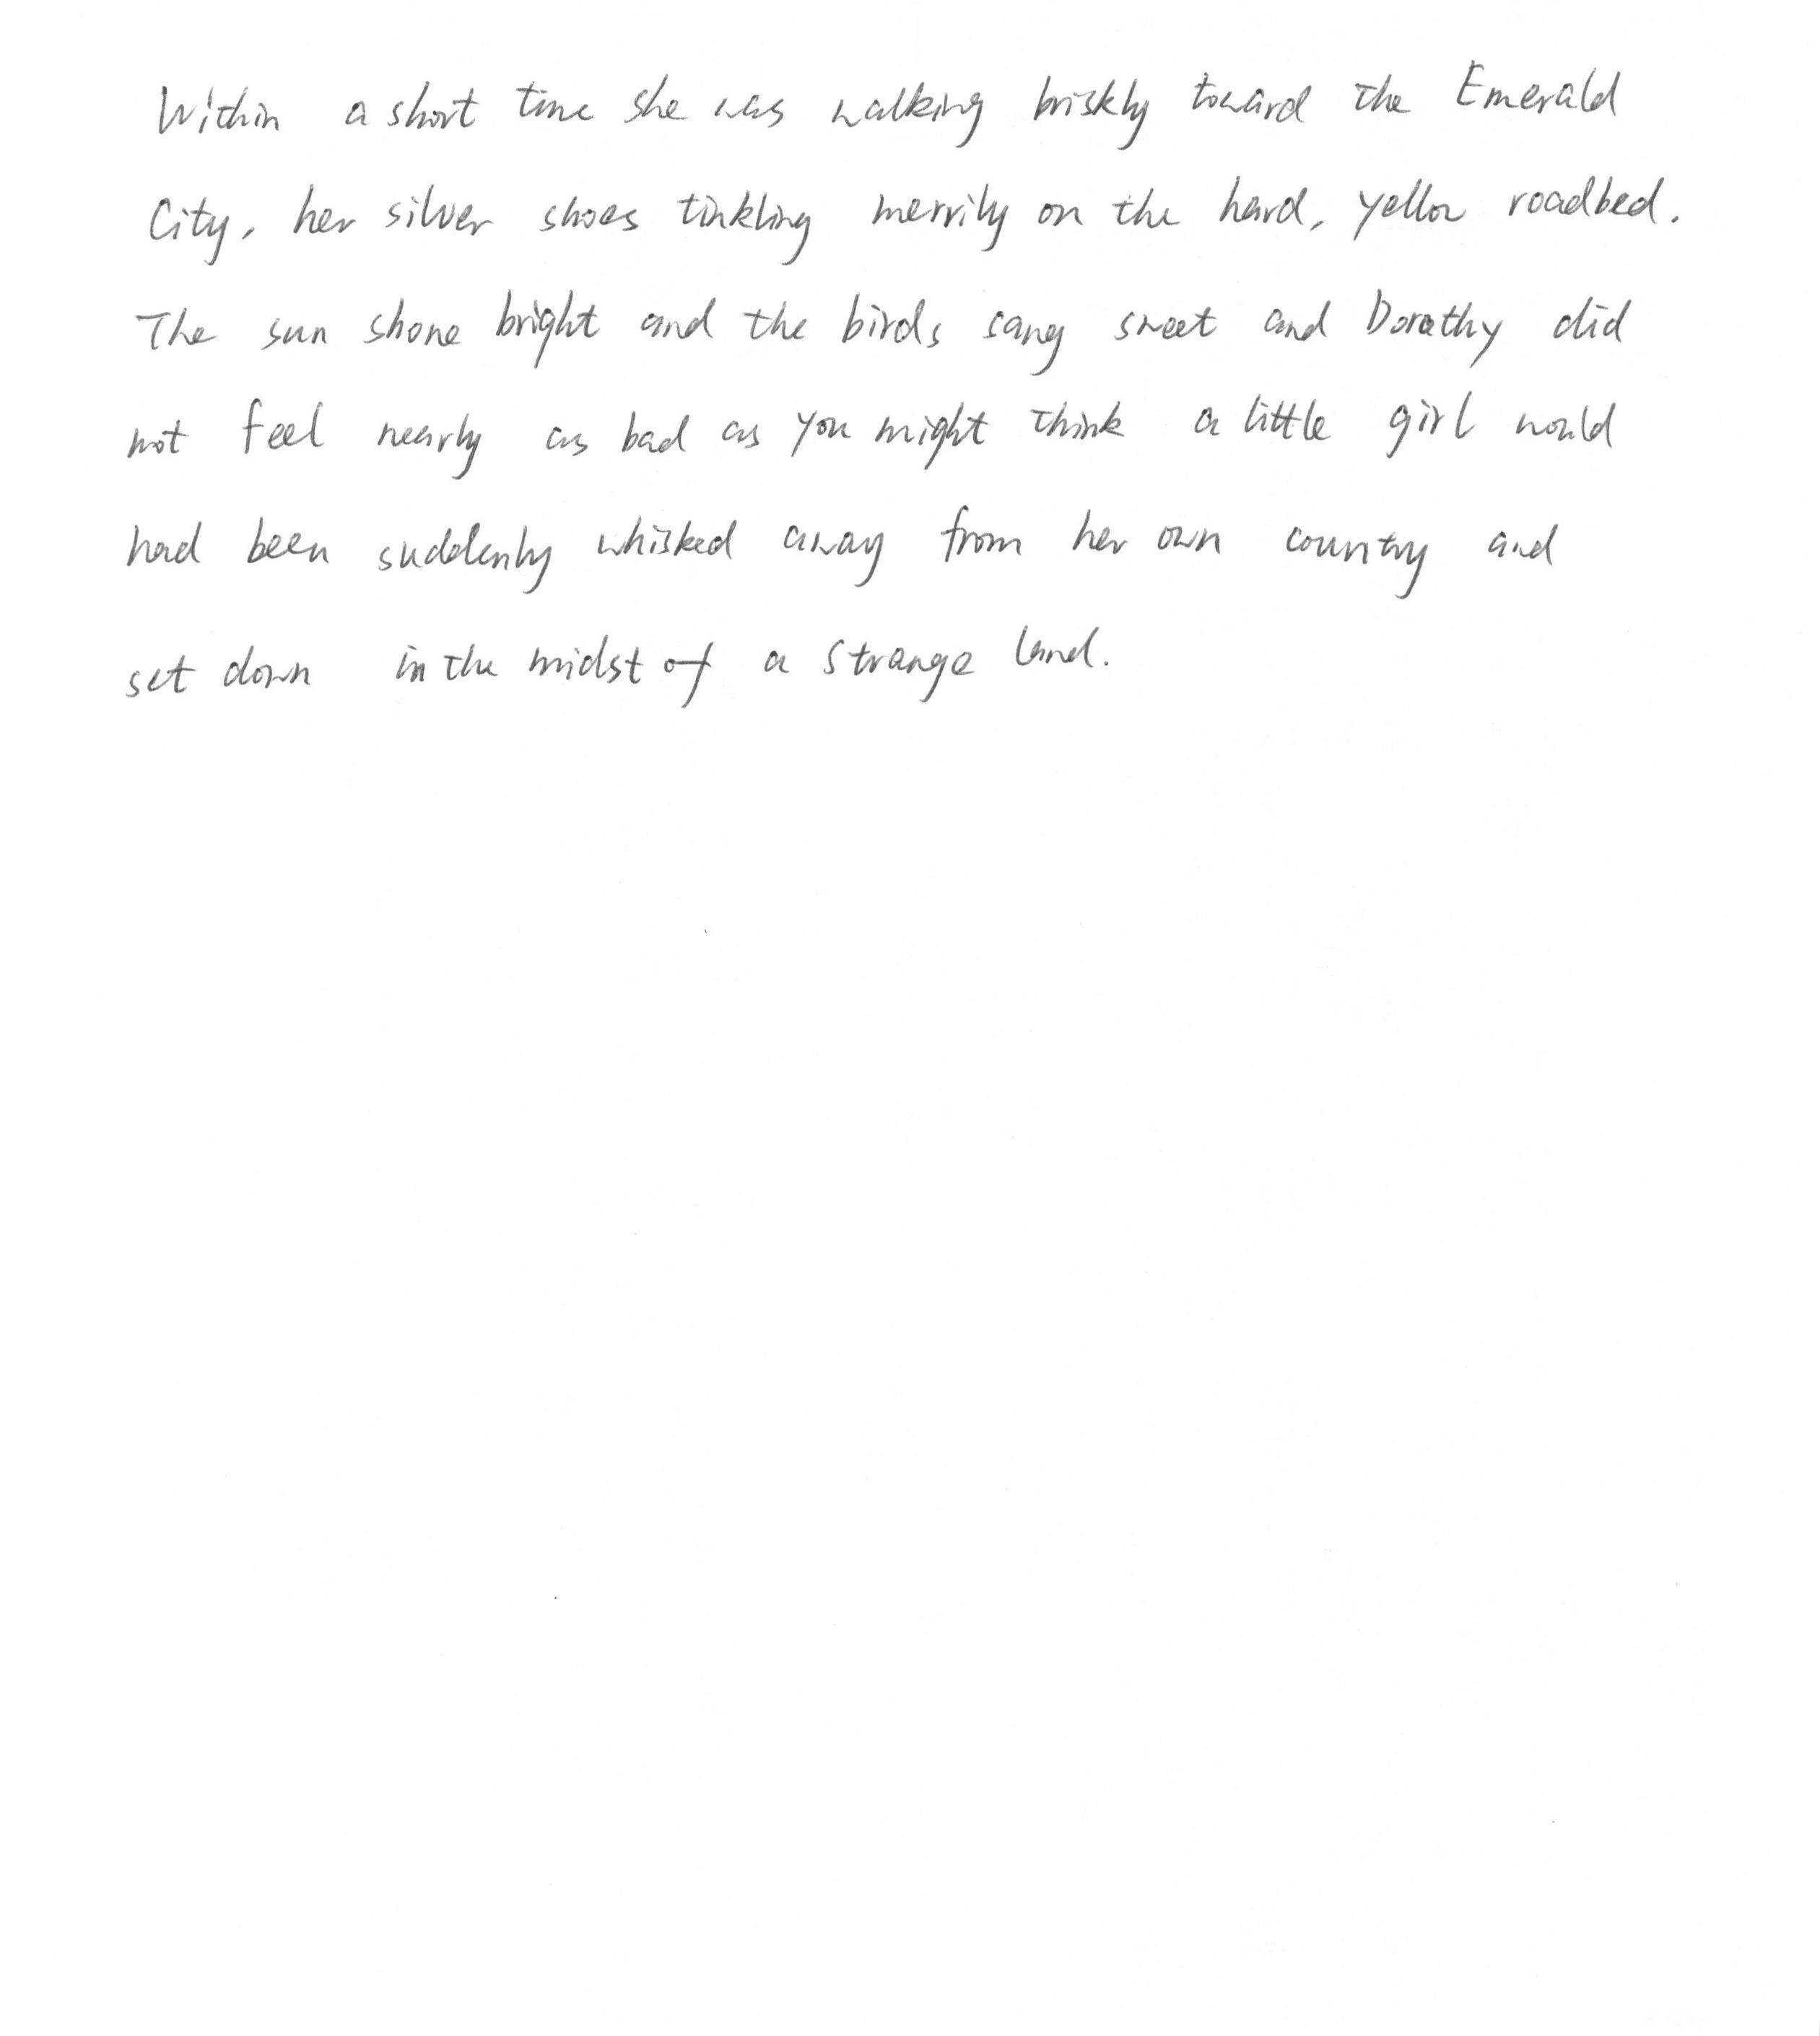 Within a short time she was walking briskly toward the Emerald
City, her silver shoes tinkling merrily on the hard, yellow roadbed.
The sun shone bright and the birds sang sweet and Dorathy did
not feel nearly as bad as you might think a little girl would
had been suddenly whisked away from her own country and
set down in the midst of a strange land.